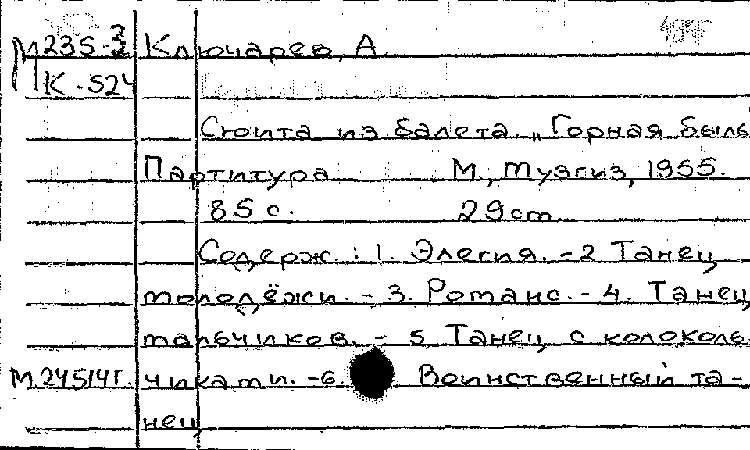 М235-3 Ключарев, А.
К-524
Сюита из балета „Горная быль
Партитура М., Музгиз, 1955.
85 с. 29 cm
Содерж.: 1. Элегия. - 2 Танец
молодёжи. - 3. Романс. - 4. Танец
мальчиков. - 5. Танец с колоколь
М.24514г. чиками. - 6. Воинственный та-
нец